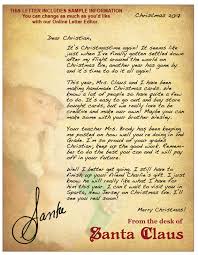 THIS LETTER INCLUDES SAMPLE INFORMATION
You can change as much as you'd like
with our Online Letter Editor.
Christmas 2017
Dear Christian,
It's Christmastime again! It seems like
just when I've finally gotten settled down
after my flight around the world on
Christmas Eve, another year has gone by
and it's time to do it all again!
This year, Mrs. Claus and I have been
making handmade Christmas cards. We
know a lot of people so have quite a few
to do. It is easy to go out and buy store
bought cards, but we really love to be
creative and make our own. You can make
some with your brother
Your teacher Mrs. Brady has been keeping
me posted on how well you're doing in 3rd
Grade. I'm so proud of your hard work
Christian, keep up the good work. Remember
to do the best you can and it will pay
off in your future.
Well I better get going. I still have to
finish up your friend Charlie's gift. I just
know he will really like what I have for
him this year. I can't wait to visit your
New Jersey on Christmas Eve for
I'll see you real soon!
Merry Christmas!
Santa
From the desk of
Santa Claus